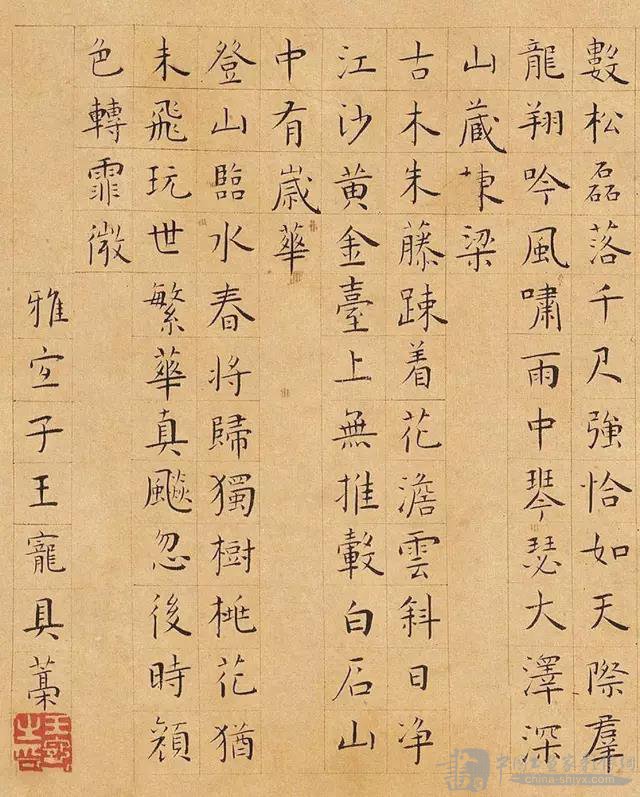 數松磊落千尺強恰如天際羣
龍翔吟風嘯雨中琴瑟大澤深
山藏棟梁
古木朱藤踈着花澹雲斜日净
江沙黄金臺上無推轂白石山
中有嵗華
登山臨水春將歸獨樹桃花猶
未飛玩世繁華真飈忽後時顔
色轉霏微
雅宜子王寵具藁
china-shyx.com